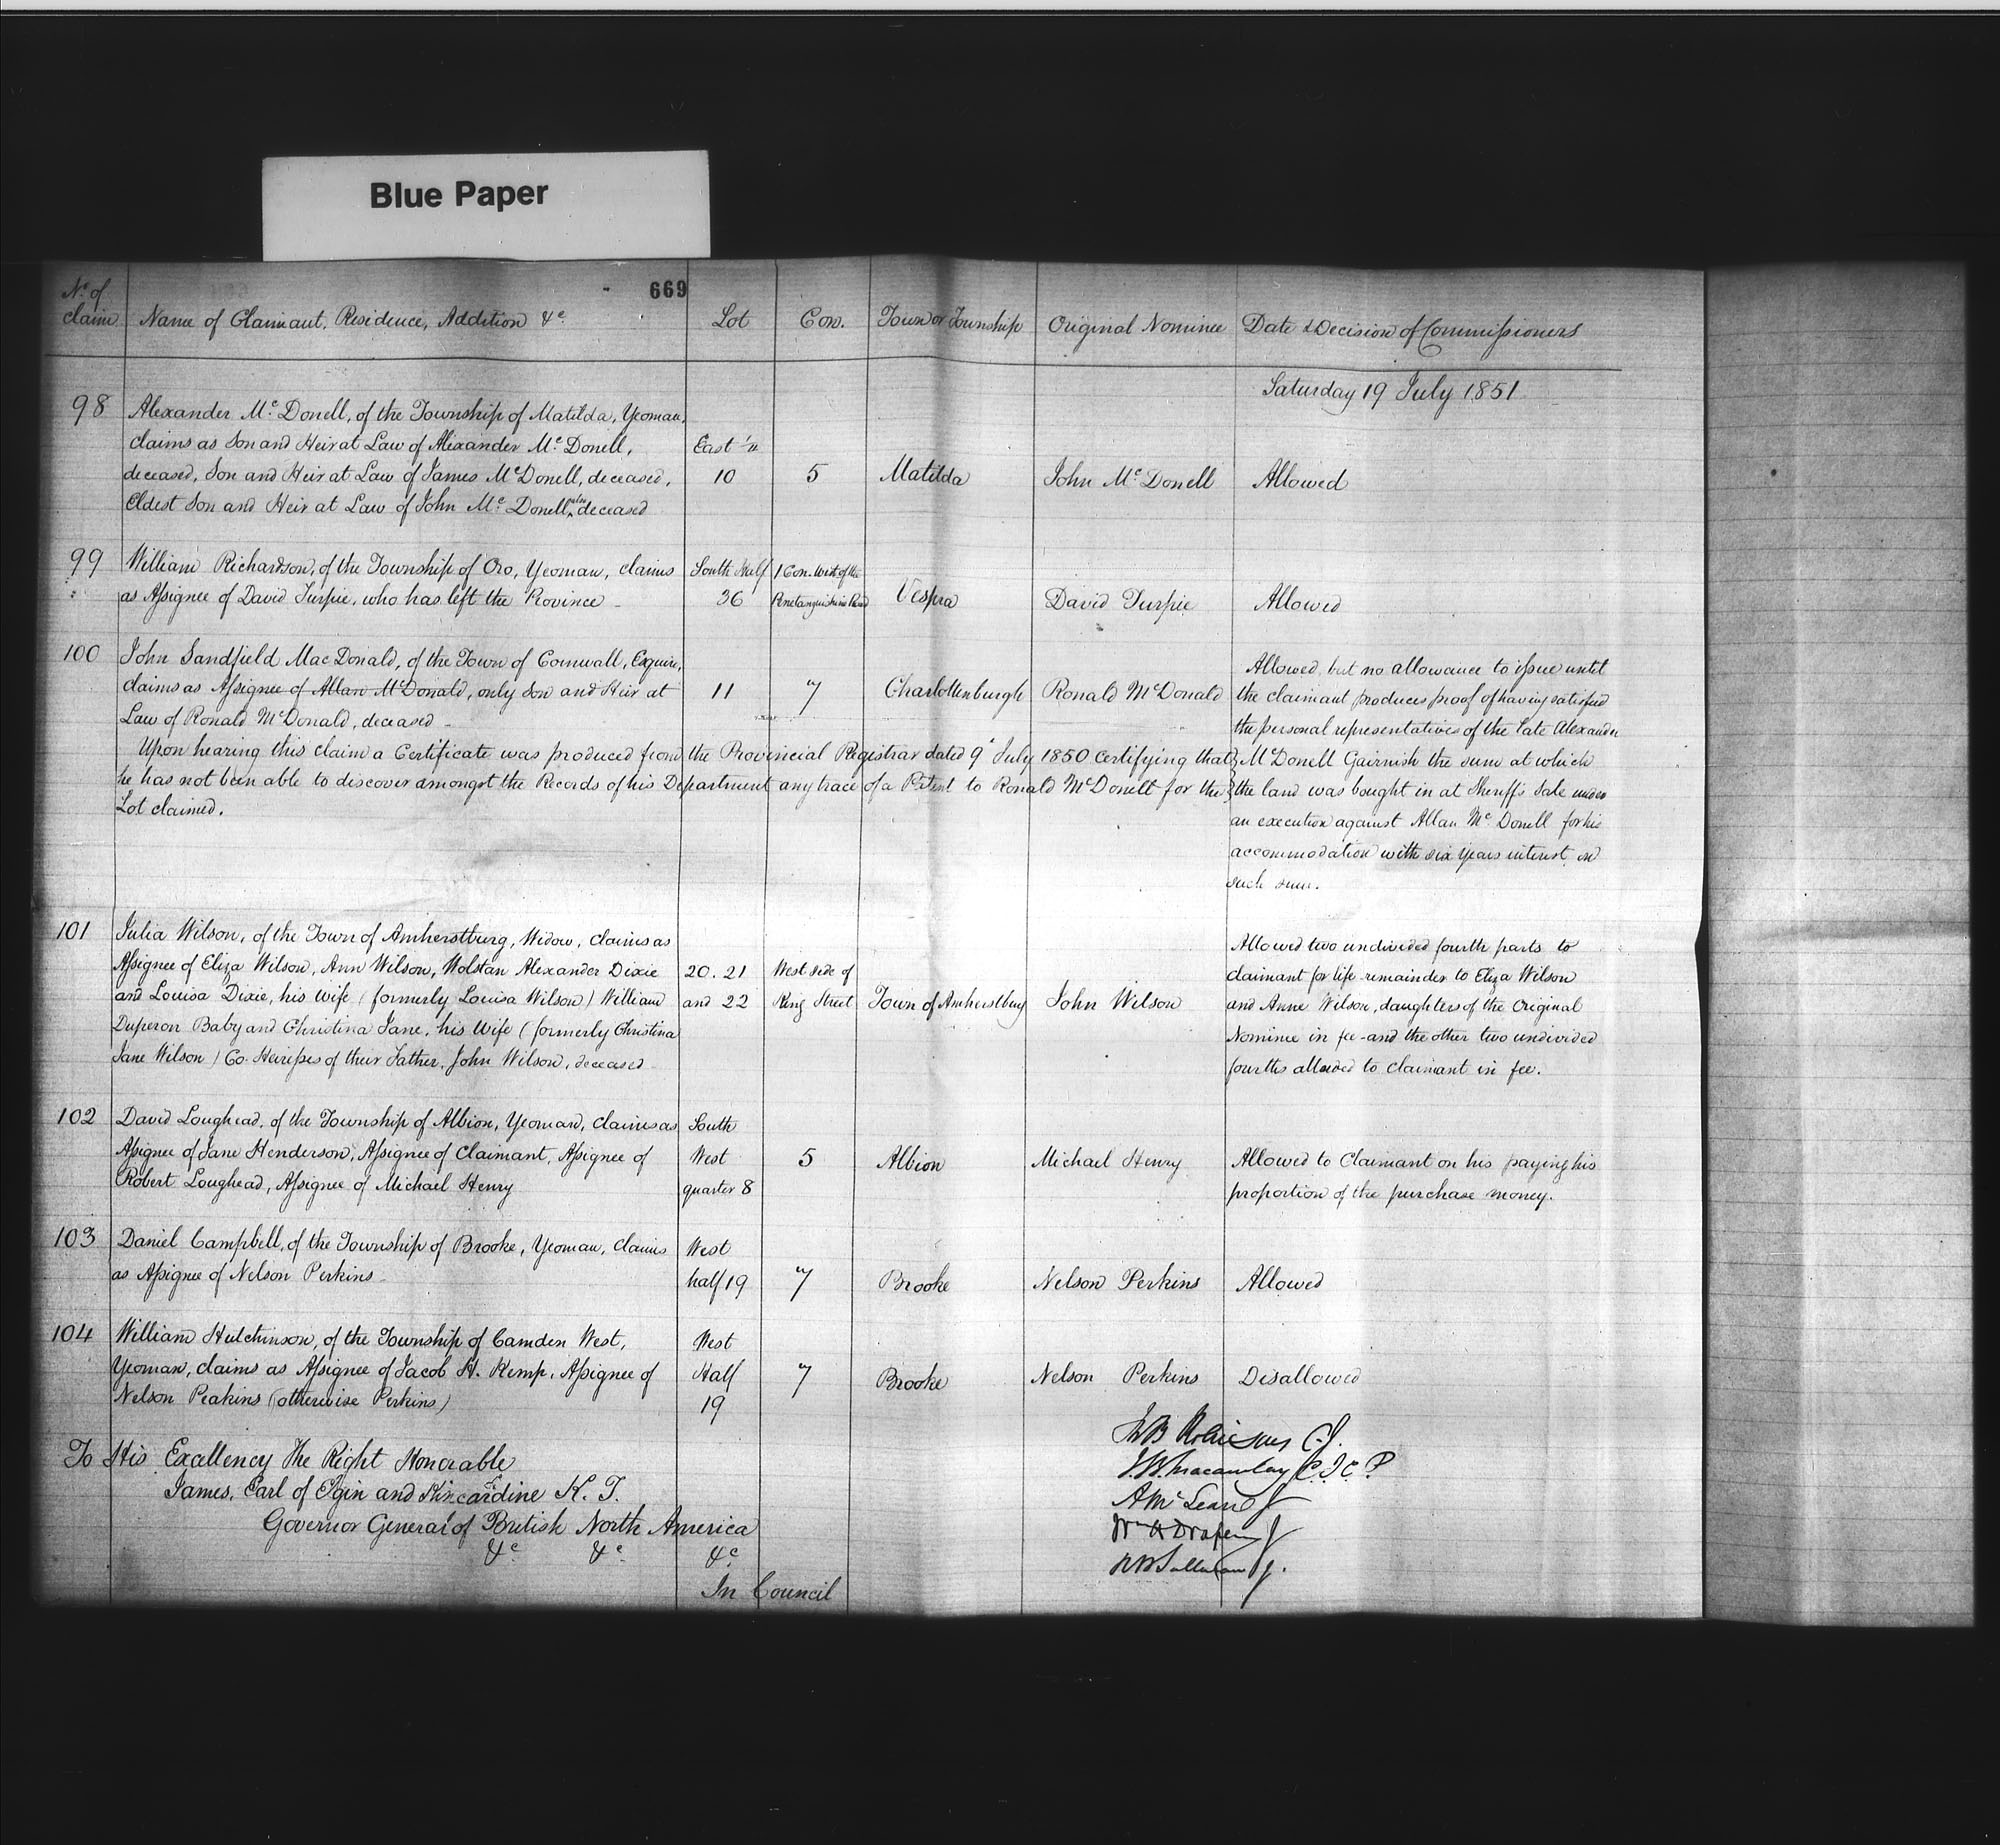 Blue Paper
669
No. of claim
Name of Claimant, Residence, Addition &c.
Lot
Con.
Town or Township
Original Nominee
Date & Decision of Commissioners
Saturday 19 July 1851
98
Alexander McDonell, of the Township of Matilda, Yeoman,
claims as Son and Heir at Law of Alexander McDonell,
deceased, Son and Heir at Law of James McDonell, deceased,
Eldest Son and Heir at Law of John McDonell, also deceased
East ½
10
5
Matilda
John McDonell
Allowed
99
William Richardson, of the Township of Oro, Yeoman, claims
as Assignee of David Turpie, who has left the Province
South Half
36
1 Con. West of the
Penetanguishine Road
Vespra
David Turpie
Allowed
100
John Sandfield MacDonald, of the Town of Cornwall, Esquire,
claims as Assignee of Allan McDonald, only Son and Heir at
Law of Ronald McDonald, deceased
11
7
Charlottenburgh
Ronald McDonald
Upon hearing this claim a Certificate was produced from the Provincial Registrar dated 9th July 1850 certifying that
he has not been able to discover amongst the Records of his Department any trace of a Patent to Ronald McDonell for the
Lot claimed.
Allowed, but no allowance to issue until
the claimant produces proof of having satisfied
the personal representatives of the late Alexander
McDonell Gairnish the sum at which
the land was bought in at Sheriff's Sale under
an execution against Allan McDonell for his
accommodation with six years interest on
such sum.
101
Julia Wilson, of the Town of Amherstburg, Widow, claims as
Assignee of Eliza Wilson, Ann Wilson, Wolstan Alexander Dixie
and Louisa Dixie, his wife (formerly Louisa Wilson) William
Duperon Baby and Christina Jane, his Wife (formerly Christina
Jane Wilson) Co-Heiresses of their Father, John Wilson, deceased
20. 21
and 22
West side of
King Street
Town of Amherstburg
John Wilson
Allowed two undivided fourth parts to
claimant for life remainder to Eliza Wilson
and Anne Wilson, daughters of the Original
Nominee in fee - and the other two undivided
fourths allowed to claimant in fee.
102
David Loughead, of the Township of Albion, Yeoman, claims as
Assignee of Jane Henderson, Assignee of Claimant, Assignee of
Robert Loughead, Assignee of Michael Henry
South
West
quarter 8
5
Albion
Michael Henry
Allowed to Claimant on his paying his
proportion of the purchase money.
103
Daniel Campbell, of the Township of Brooke, Yeoman, claims
as Assignee of Nelson Perkins
West
half 19
7
Brooke
Nelson Perkins
Allowed
104
William Hutchinson, of the Township of Camden West,
Yeoman, claims as Assignee of Jacob H. Kemp, Assignee of
Nelson Peakins (otherwise Perkins)
West
Half
19
7
Brooke
Nelson Perkins
Disallowed
Jno B Robinson C.J.
J.B. Macaulay C.J.C.P
A McLean J
Wm H Draper J
RB Sullivan J.
To His Excellency The Right Honorable
James, Earl of Elgin and Kincardine K. T.
Governor General of British North America
&c &c &c
In Council